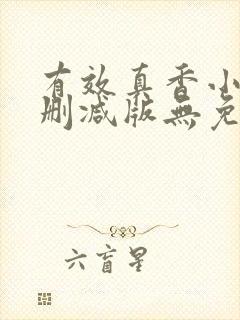 有效真香小
删减版無免
六盲星